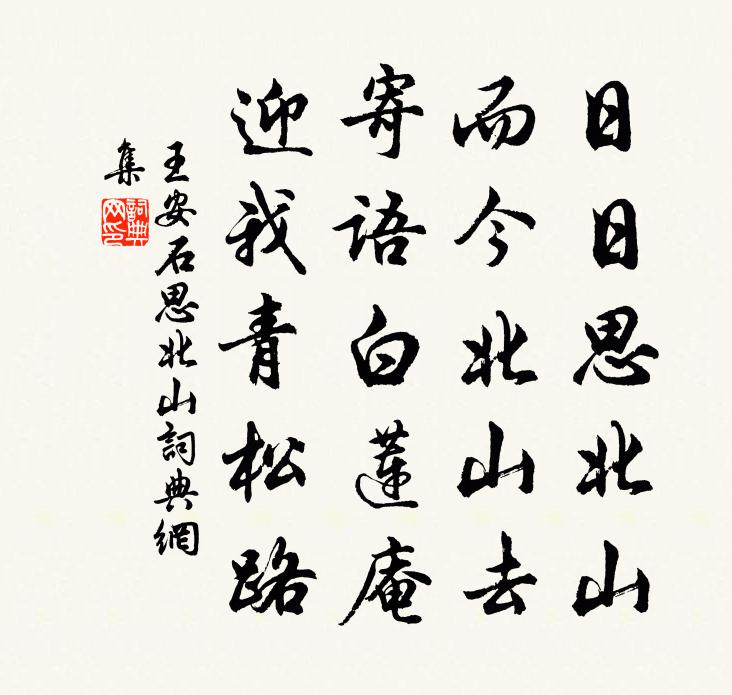 日日思北山
而今北山去
寄語白蓮庵
迎我青松路
王安石思北山詞典網
集
詞典
网印